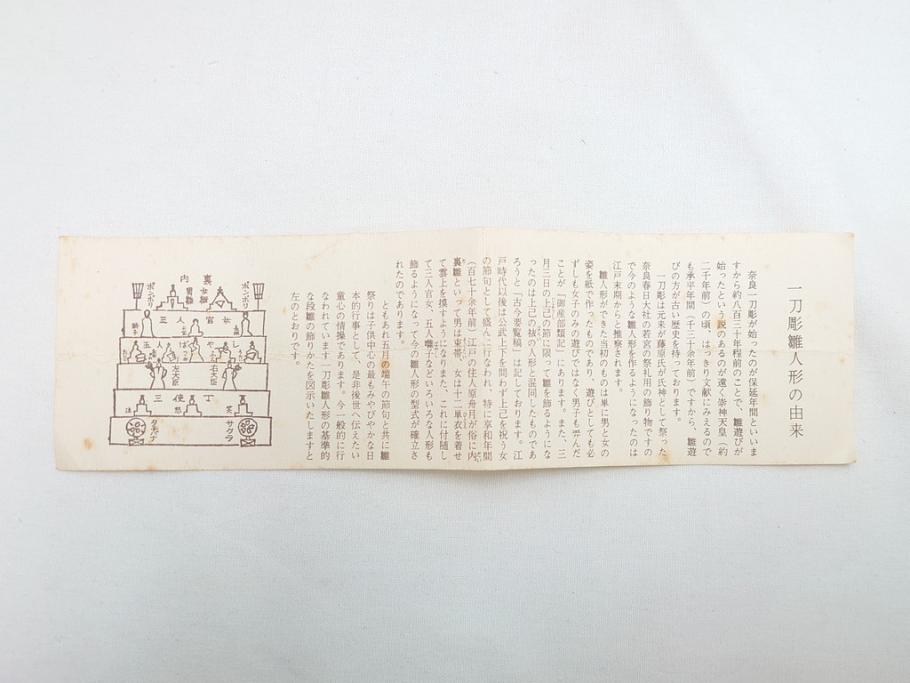 一刀彫雛人形の由来
奈良一刀彫が始ったのが保延年間といいま
すから約八百三十年程前のことで、雛遊びが
始ったという説のあるのが遠く崇神天皇（約
二千年前）の頃、はっきり文献にみえるので
も承平年間（千三十余年前）ですから、雛遊
びの方が古い歴史を持っております。
一刀彫は元来が藤原氏が氏神として祭った
奈良春日大社の若宮の祭礼用の飾り物ですの
で今のような雛人形を作るようになったのは
江戸末期からと推察されます。
雛人形ができた当初のものは単に男と女の
姿を紙で作ったものであり、遊びとしても必
ずしも女子のみの遊びではなく男子も雲んだ
ことが「御産部類記」にあります。また、三
月三日の上己の節に限って雛を飾るようにな
ったのは上己の祓の人形と混同したものであ
ろうと「古今要覧稿」は記しております。江
戸時代以後は公武上下を問わず上己を祝う女
の節句として盛んに行なわれ、特に享和年間
（百七十余年前）江戸の住人原舟月が俗に内
裏雛といって男は束帯、女は十二単衣を着せ
て雲上を摸すようになりまた、これに付随し
て三人官女、五人囃子などいろいろな人形も
飾るようになって今の雛人形の型式が確立さ
れたのであります。
ともあれ五月の端午の節句と共に雛
祭りは子供中心の最もみやびやかな日
本的行事として、是非後世へ伝えたい
童心の情操であります。今一般的に行
なわれています一刀彫雛人形の基準的
な段雛の飾りかたを図示いたしますと
左のとおりです。
内裏
ボンボリ
男雛
女雛
ボンボリ
三人官女
五人ばやし
左大臣
右大臣
三使丁
怒
笑
タチバナ
サクラ